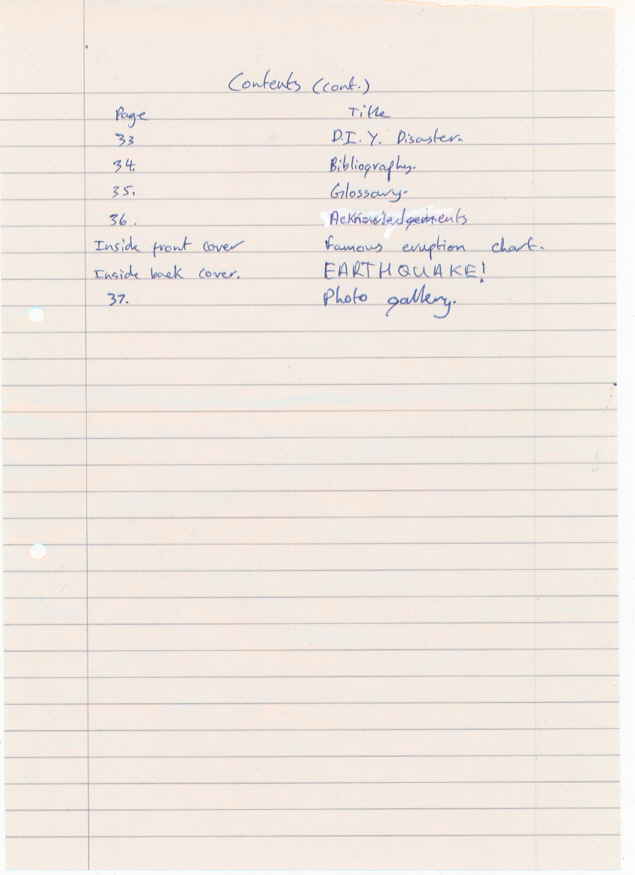 Contents (cont.)
Page Title
33 D.I.Y. Disaster.
34. Bibliography.
35. Glossary.
36. Acknowledgements
Inside front cover Famous eruption chart.
Inside back cover. EARTHQUAKE!
37. Photo gallery.